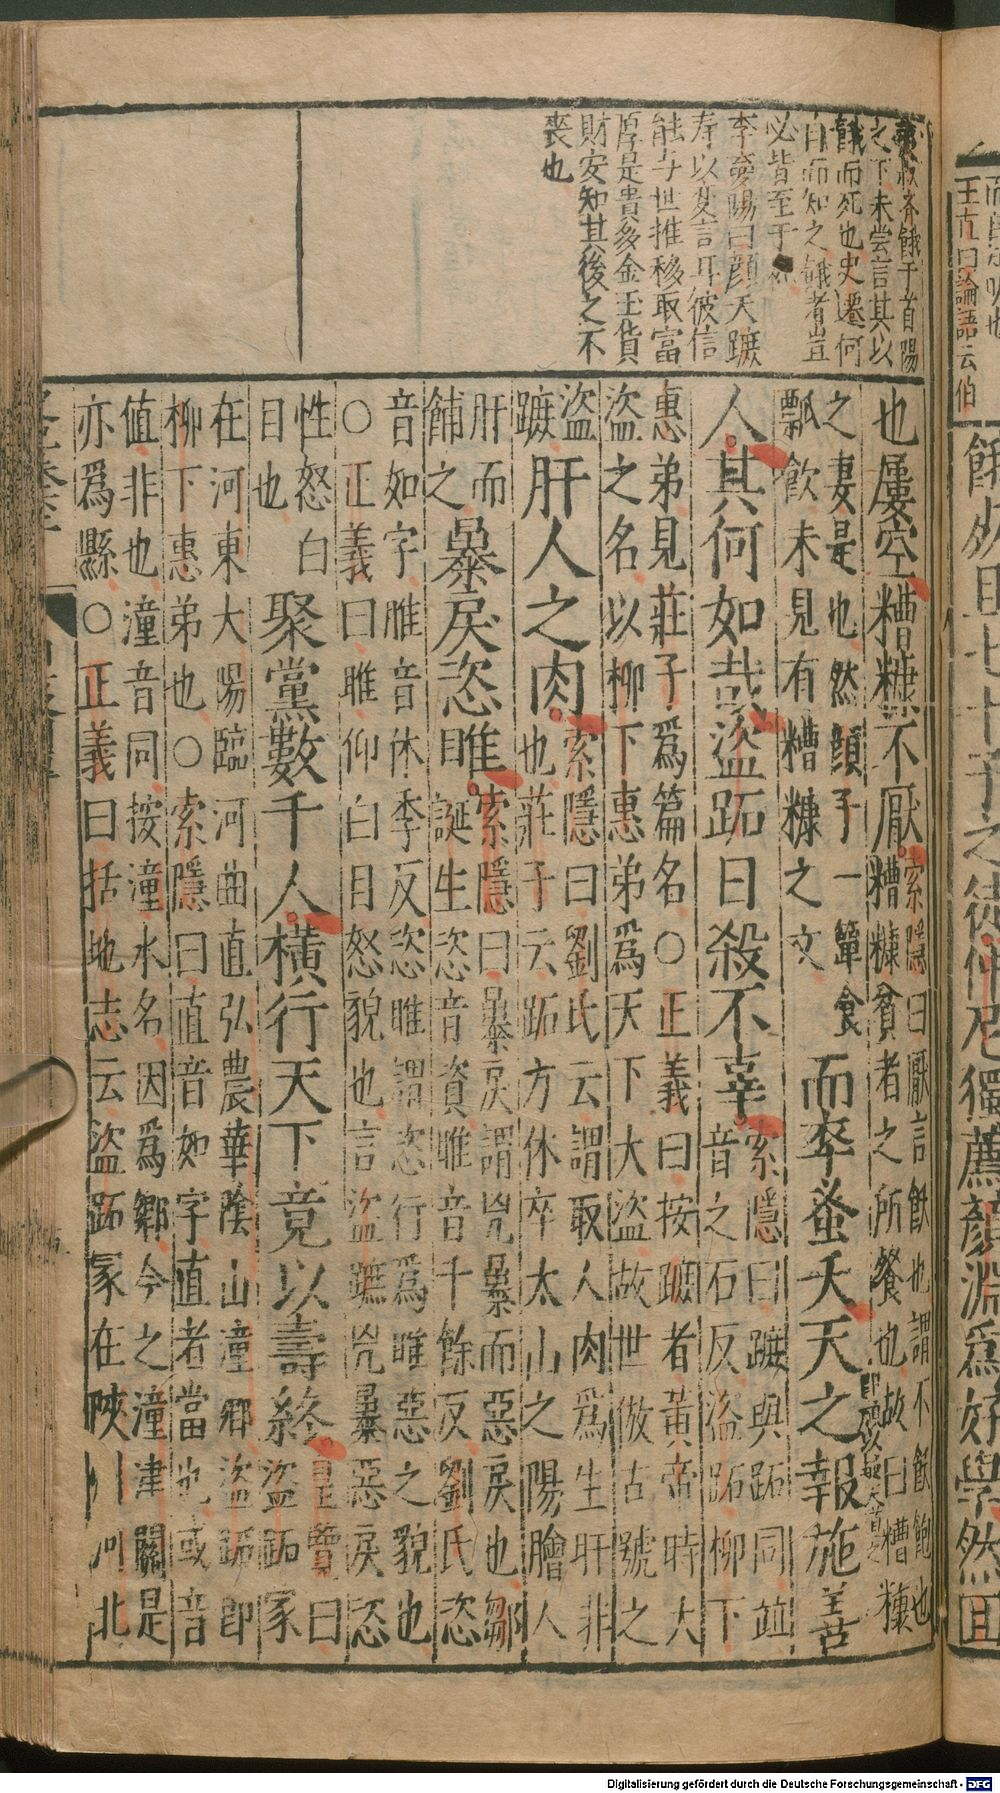 王直曰論語云伯
餓死且七十子之徒仲尼獨薦顏淵爲好學然回
夷叔齊餓于首陽
之下未嘗言其以
餓而死也史遷何
自而知之餓者豈
必皆至于
李夢陽曰顏夭蹠
寿以𠮓言耳彼信
能与世推移取富
厚是貴多金玉貨
財安知其後之不
喪也
也屢空糟糠不厭
索隱曰厭言飫也謂不飫飽也
糟糠貧者之所餐也故曰糟糠
之妻是也然顏子一簞食
瓢飲未見有糟糠之文
而卒蚤夭天之報施善
人其何如哉盜跖日殺不辜
索隱曰蹠與跖同並
音之石反盜跖柳下
惠弟見莊子爲篇名○正義曰按蹠者黃帝時大
盜之名以柳下惠弟爲天下大盜故世倣古號之
盜
蹠
肝人之肉
索隱曰劉氏云謂取人肉爲生肝非
也莊子云跖方休卒太山之陽膾人
肝而
餔之
暴戾恣睢
索隱曰暴戾謂兇暴而惡戾也鄒
誕生恣音資睢音千餘反劉氏恣
音如字睢音休季反恣睢謂恣行爲睢惡之貌也
○正義曰睢仰白目怒貌也言盜蹠兇暴惡戾恣
性怒白
目也
聚黨數千人橫行天下竟以壽終
皇覽曰
盜跖冢
在河東大陽臨河曲直弘農華陰山潼鄉盜跖即
柳下惠弟也○索隱曰直音如字直者當也或音
值非也潼音同按潼水名因爲鄉今之潼津關是
亦爲縣○正義曰括地志云盜跖冢在陝州河北
Digitalisierung gefördert durch die Deutsche Forschungsgemeinschaft - DFG